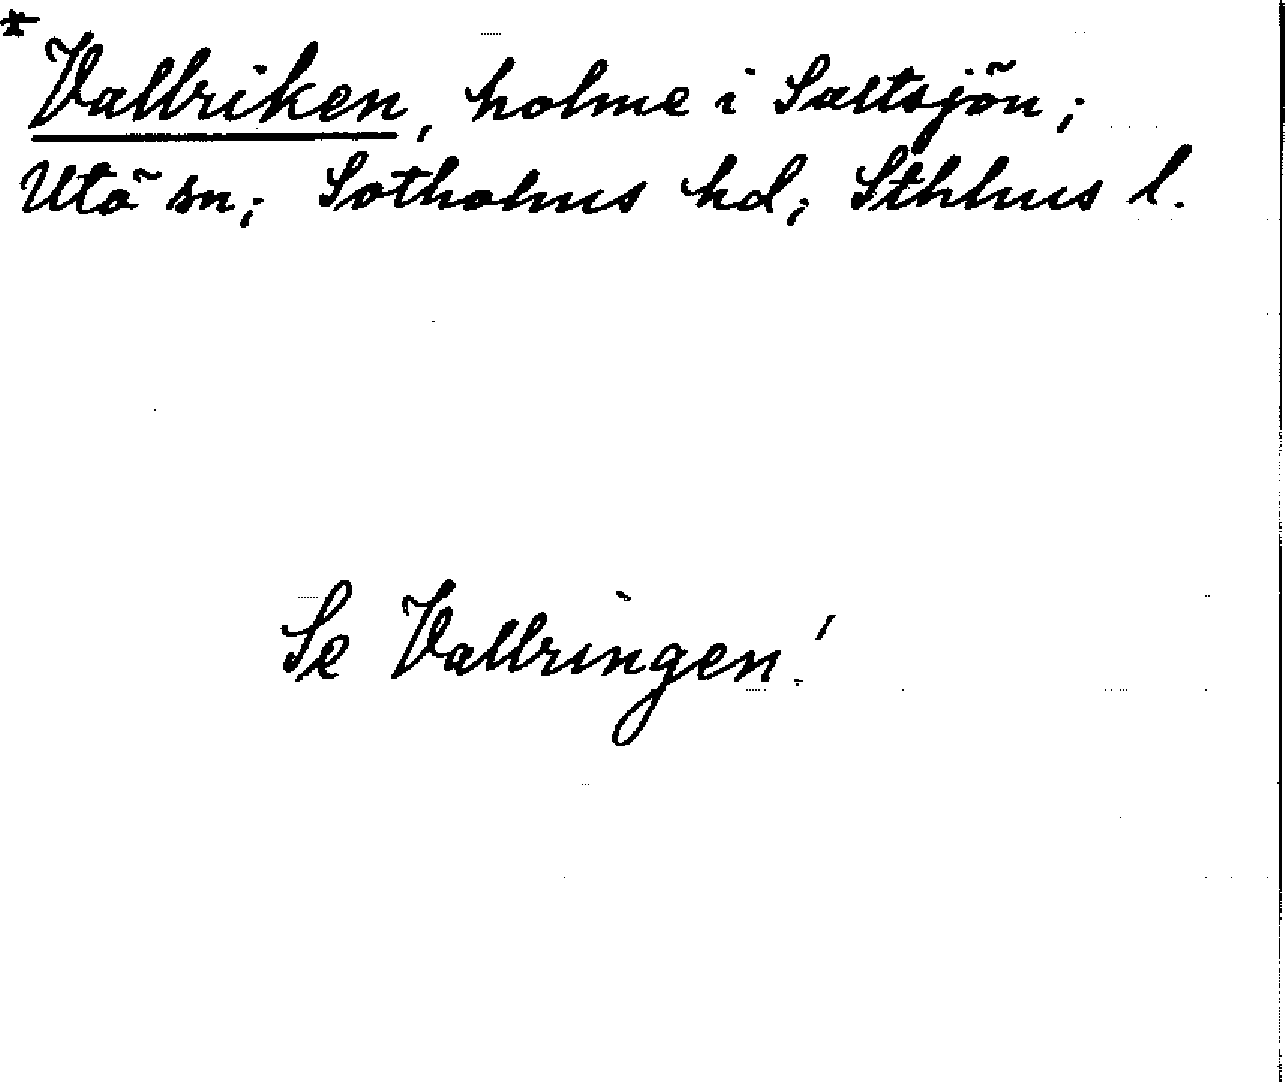 *
Vallriken, holme i Saltsjön;
Utö sn; Sotholms hd; Sthlms l.
Se Vallringen!